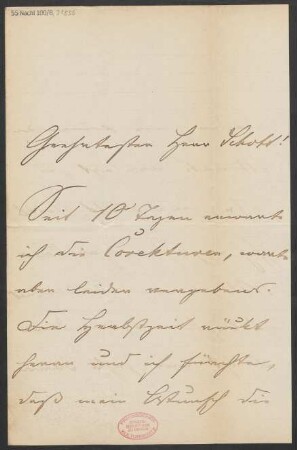 55 Nachl 100/B,
Geehrtester Herr Schott!
Seit 10 Tagen erwarte
ich die Corekturen, warte
aber leider vergebens.
Die Herbstzeit rückt
heran und ich fürchte,
daß mein Wunsch die